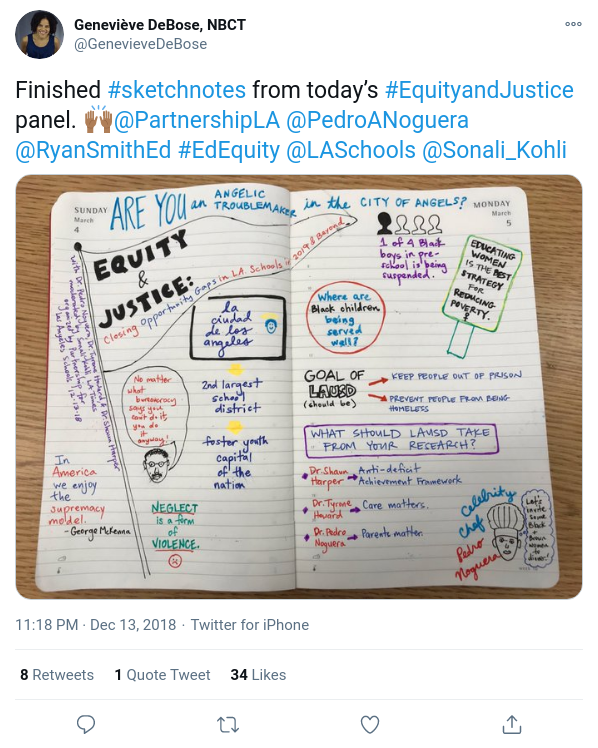 Geneviève DeBose, NBCT
@GenevieveDeBose
Finished #sketchnotes from today's #EquityandJustice
panel. 🙌🏾@PartnershipLA @PedroANoguera
@RyanSmithEd #EdEquity @LASchools @Sonali_Kohli
SUNDAY
March
4
ARE YOU an ANGELIC
TROUBLEMAKER
in the CITY OF ANGELS?
MONDAY
March
5
EQUITY
&
JUSTICE:
Closing Opportunity Gaps in L.A. Schools in 2019 & Beyond
with Dr. Pedro Noguera, Dr. Tyrone Howard & Dr. Shaun Harper
moderated by Sonali Kohli, LA Times
organized by Partnership for
Los Angeles Schools 12.13.18
la
ciudad
de los
angeles
2nd largest
school
district
foster youth
capital
of the
nation
No matter
what
bureaucracy
says you
can't do it
you do
it
anyway!
In
America
we enjoy
the
supremacy
model.
-George McKenna
NEGLECT
is a form
of
VIOLENCE.
1 of 4 Black
boys in pre-
school is being
suspended.
EDUCATING
WOMEN
IS THE BEST
STRATEGY
FOR
REDUCING
POVERTY.
Where are
Black children
being
served
well?
GOAL OF
LAUSD
(should be)
KEEP PEOPLE OUT OF PRISON
PREVENT PEOPLE FROM BEING
HOMELESS
WHAT SHOULD LAUSD TAKE
FROM YOUR RESEARCH?
Dr. Shaun
Harper
Anti-deficit
Achievement Framework
Dr. Tyrone
Howard
Care matters.
Dr. Pedro
Noguera
Parents matter.
Celebrity
Chef
Pedro
Noguera
Let's
invite
some
Black
+
Brown
women
to
dinner!
11:18 PM · Dec 13, 2018 · Twitter for iPhone
8 Retweets 1 Quote Tweet 34 Likes